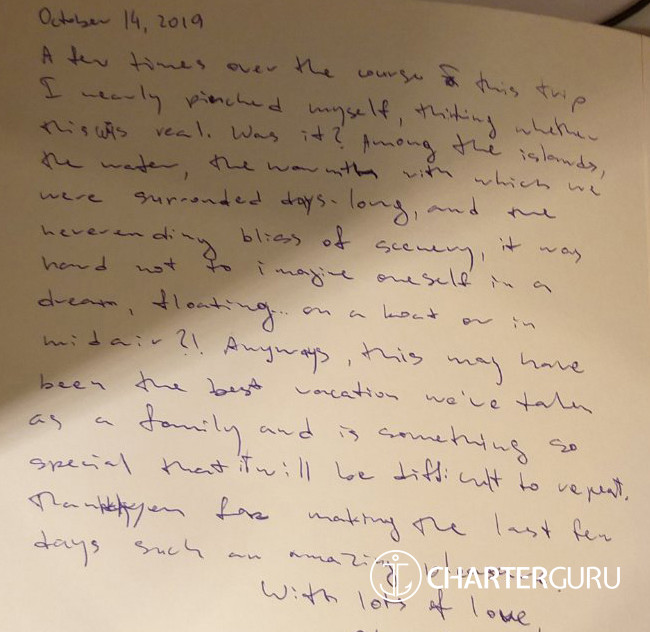 October 14, 2019
A few times over the course of this trip
I nearly pinched myself, thinking whether
this was real. Was it? Among the islands,
the water, the warmth with which we
were surronded days-long, and the
neverending bliss of scenery, it was
hard not to imagine oneself in a
dream, floating... on a boat or in
midair?! Anyways, this may have
been the best vacation we've taken
as a family and is something so
special that it will be difficult to repeat.
Thank you for making the last few
days such an amazing
CHARTERGURU
With lots of love,